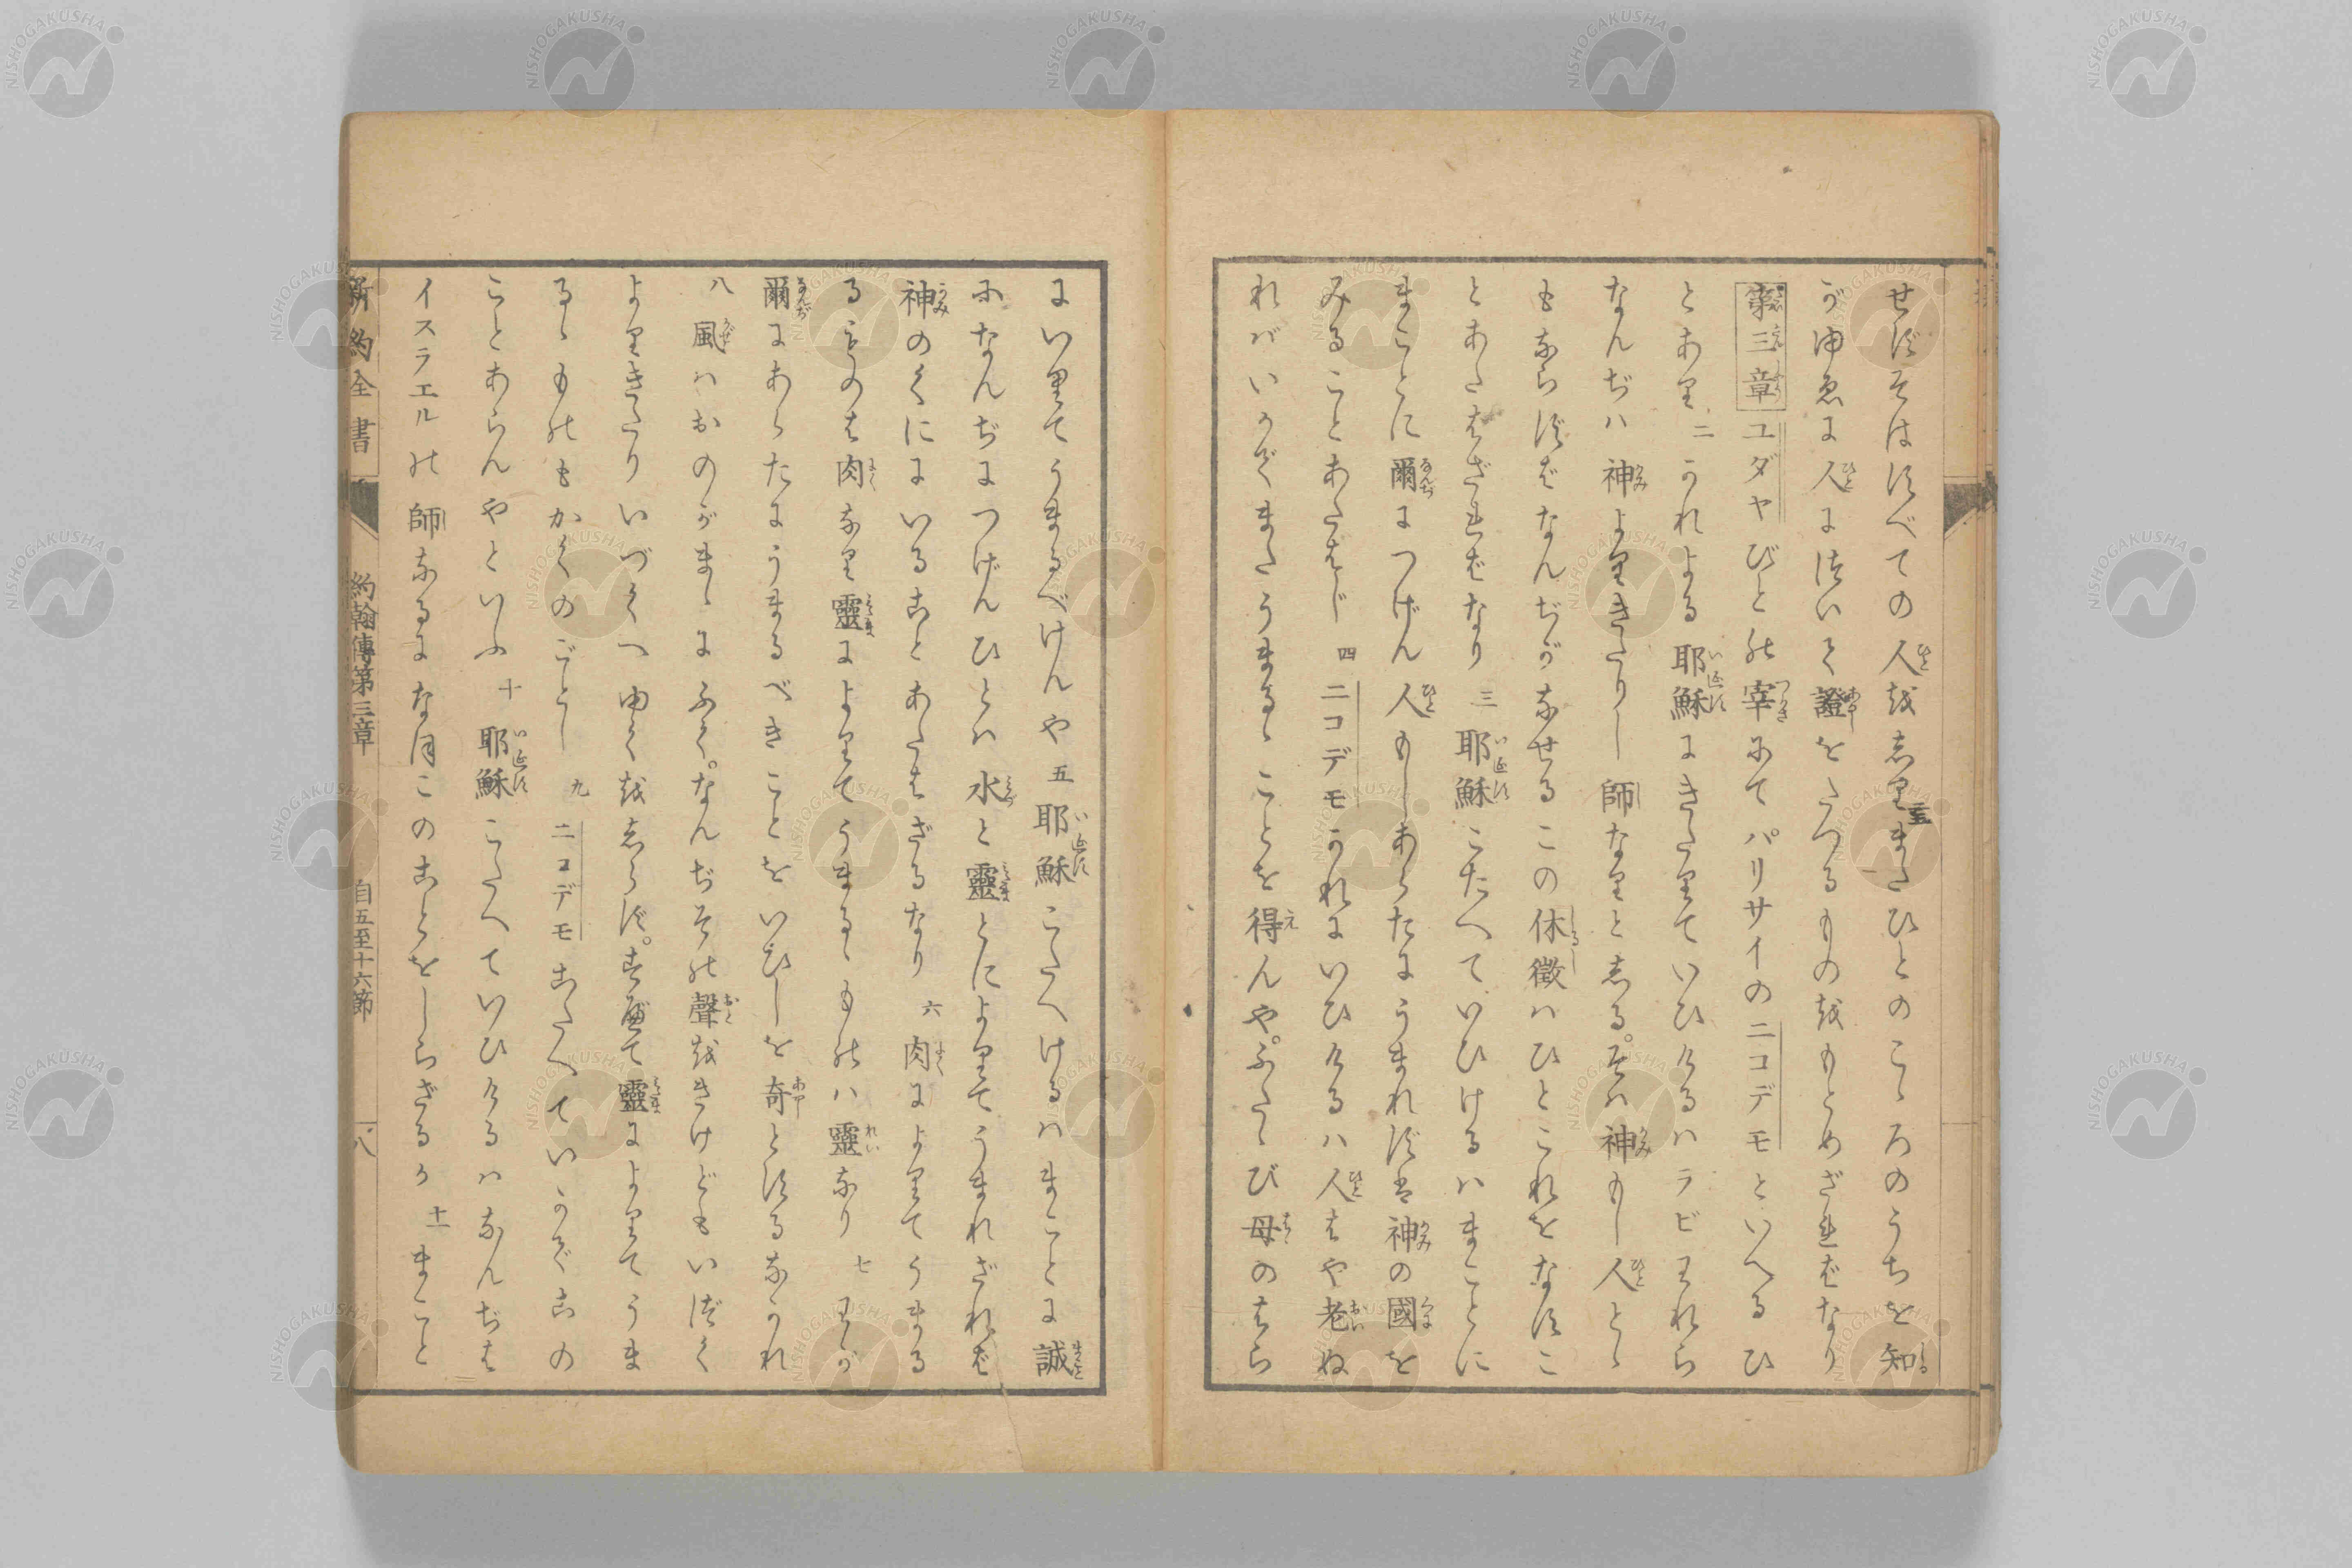 せずそはすべての人を志り二十五またひとのこゝろのうちを知
がゆゑに人について證をたつるものをもとめざればなり
第三章 ユダヤびとの宰にてパリサイのニコデモといへるひ
とあり 二 かれよる耶穌にきたりていひけるハラビわれら
なんぢハ神よりきたりし師なりと志る。そハ神もし人とゝ
もならずばなんぢがなせるこの休徴ハひとこれをなすこ
とあたはざればなり 三 耶穌こたへていひけるハまことに
まことに爾につげん人もしあらたにうまれずバ神の國を
みることあたはじ 四 ニコデモかれにいひけるハ人はや老ぬ
ればいかでまたうまるゝことを得んや。ふたゝび母のはら
にいりてうまるべけんや 五 耶穌こたへけるハまことに誠
になんぢにつげんひとハ水と靈とによりてうまれざれば
神のくににいることあたはざるなり 六 肉によりてうまる
るものは肉なり靈によりてうまるゝものハ靈なり 七 わが
爾にあらたにうまるべきことをいひしを奇とするなかれ
八 風ハおのがまゝにふく。なんぢその聲をきけどもいづく
よりきたりいづくへゆくを志らず。すべて靈によりてうま
るゝものもかくのごとし 九 ニコデモこたへていかでこの
ことあらんやといふ 十 耶穌こたへていひけるハなんぢは
イスラエルの師なるになほこのことをしらざるか 十一 まこと
新約全書 約翰傳第三章 自五至十六節 八
NISHOGAKUSHA